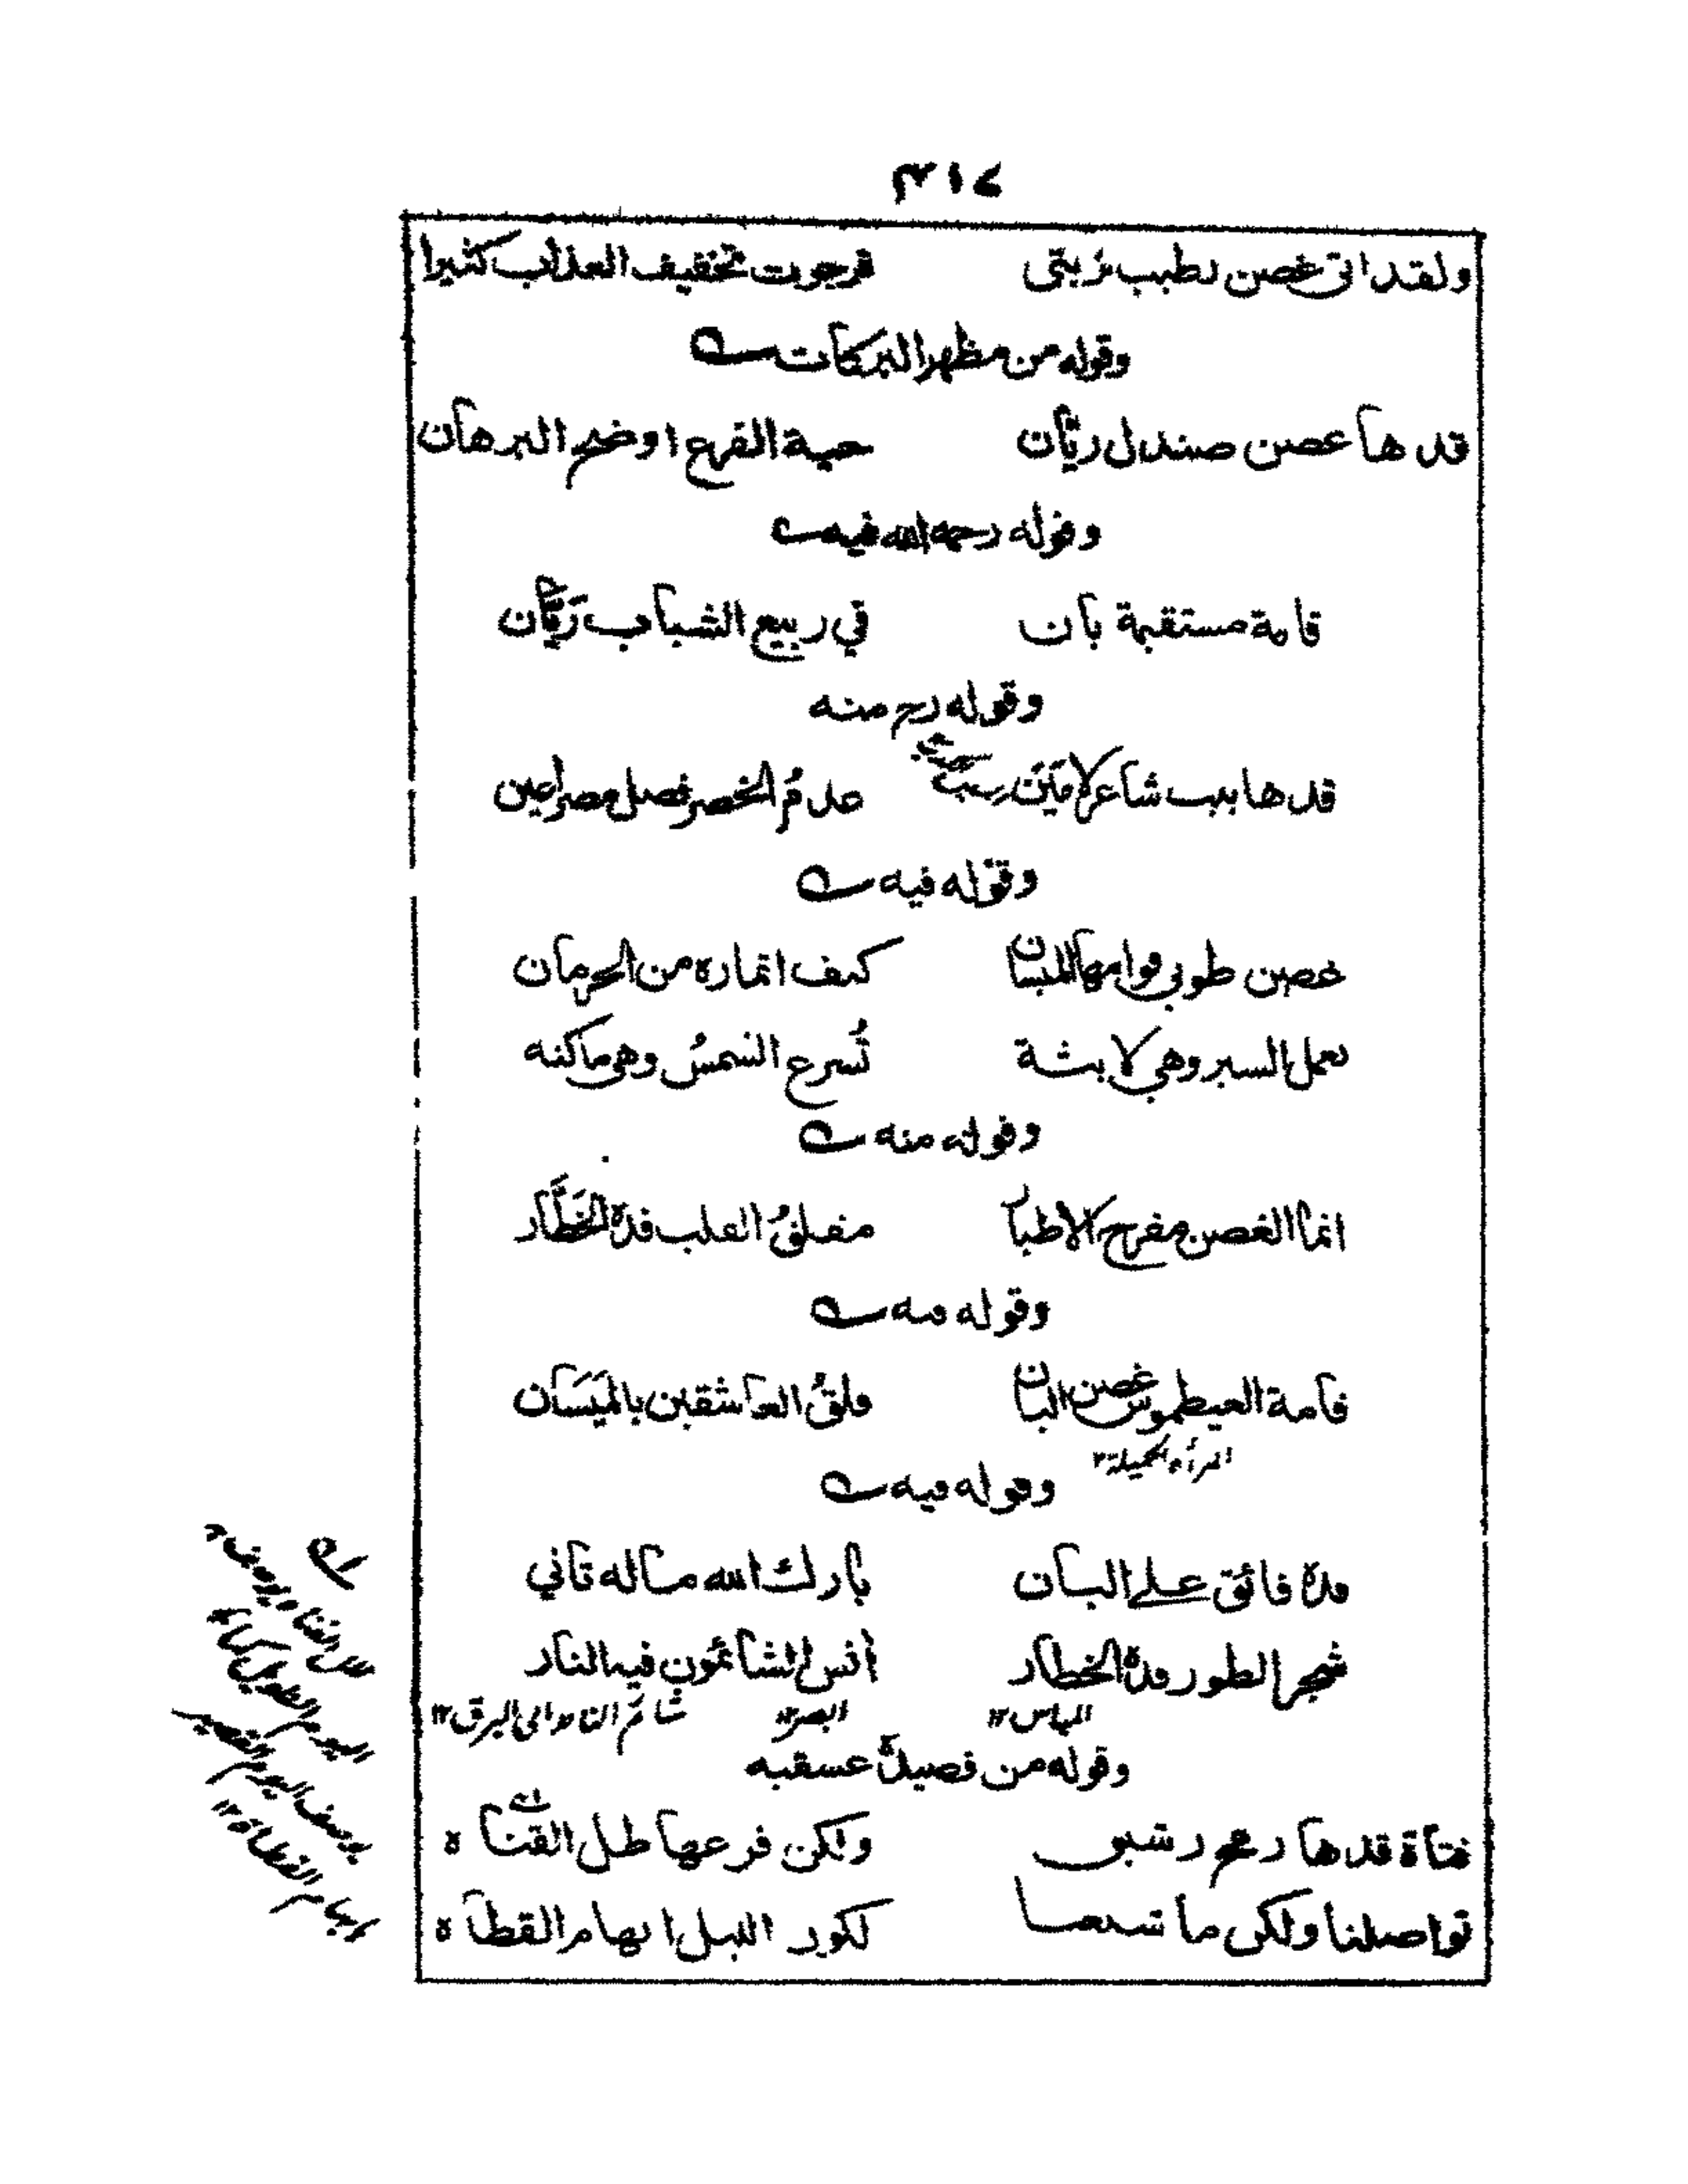 ٣١٧
ولقد اتى غصن رطيب تربتي فرجوت تخفيف العذاب كثيرا
وقوله من مظهر البركات
قدها غصن صندل ريّان حية الفرع اوضح البرهان
وقوله رحمه الله فيه
قامة مستقيمة بان في ربيع الشباب رَيَّان
وقوله رح منه
قدها بيت شاعر عدمُ الخصر فصل مصراعين
وقوله فيه
غصن طوبى قوامها الميسان كيف اثماره من الحرمان
تعمل السير وهي لابثة تُسرع الشمسُ وهي ماكثه
وقوله منه
انما الغصن مفرح الاطيار مقلقُ القلب قدّه الخَطَّار
وقوله منه
قامة العيطموس غصن البان مقلقُ العاشقين بالمَيَسَان
المرأة الجميلة ١٢
وقوله فيه
قده فائق على البان بارك الله ماله ثاني
شجر الطور قده الخطار آنس الشائمون فيه النار
المياس ١٢ ابصر ١٢ شائم الناظر الى البرق ١٢
وقوله من قصيدة عسقيه
فتاة قدها رمح رشيق ولكن فرعها ظل القناة
تواصلنا ولكن ما لكور الليل ابهام القطاة
ظل القناة يوصف به
اليوم الطويل كما
يوصف اليوم القصير
بابهام القطاة ١٢